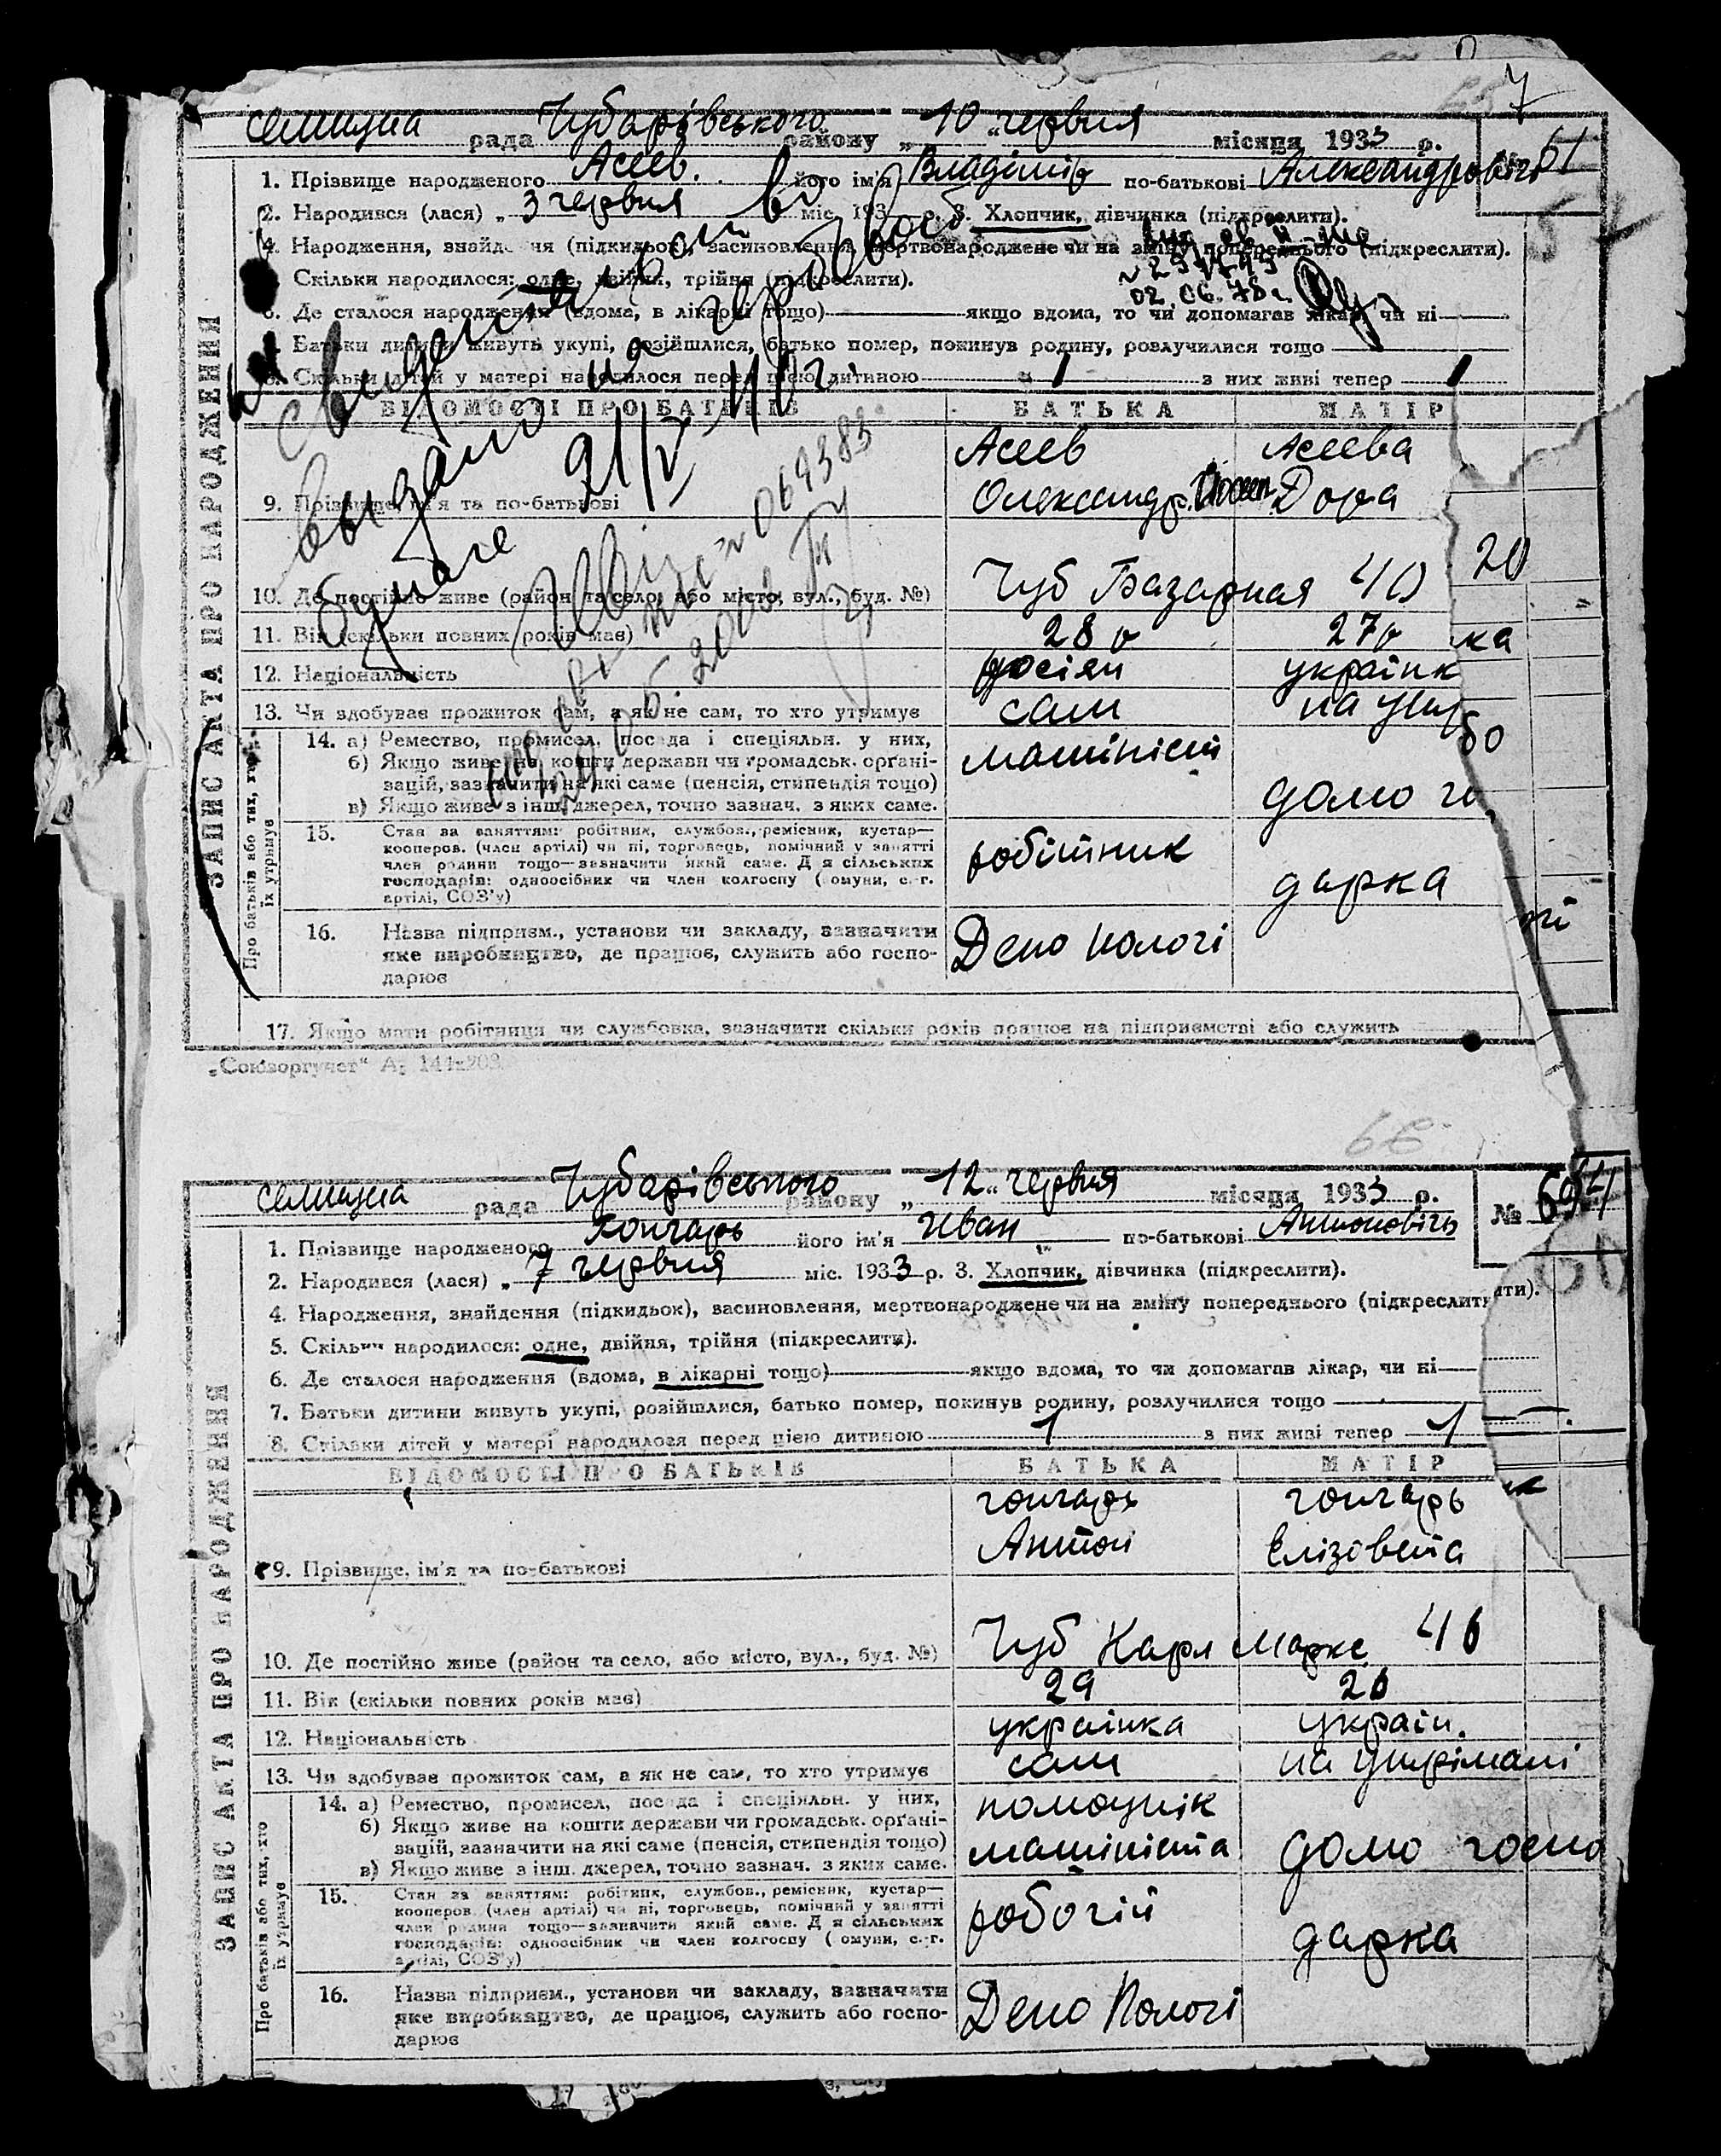 7
селищна рада Чубарівського району „ 10 " червня місяця 1933 р.
№ 61
1. Прізвище народженого Асеев. його ім'я Владімір по-батькові Александрович
2. Народився (лася) „ 3 червня міс. 193 р. 3. Хлопчик, дівчинка (підкреслити).
4. Народження, знайдення (підкидьок), засиновлення, мертвонароджене чи на зміну попереднього (підкреслити).
Скільки народилося: одне, двійня, трійня (підкреслити).
02.06.78 г.
6. Де сталося народження (вдома, в лікарні тощо) якщо вдома, то чи допомагав лікар, чи ні
Батьки дитини живуть укупі, розійшлися, батько помер, покинув родину, розлучилися тощо
8. Скільки дітей у матері народилося перед цією дитиною 1 з них живі тепер 1
ВІДОМОСТІ ПРО БАТЬКІВ БАТЬКА МАТІР
Выдано
№ 069383
Асеев Асеева
9. Прізвище, ім'я та по-батькові Олександр. Дора
10. Де постійно живе (район та село, або місто, вул., буд. №) Чуб Базарная 40
20
11. Вік (скільки повних років має) 28 р 27 р
ка
12. Національність росіян українк
13. Чи здобуває прожиток сам, а як не сам, то хто утримує сам на
14. а) Ремество, промисел, посада і спеціяльн. у них,
б) Якщо живе на кошти держави чи громадськ. органі-
зацій, зазначити на які саме (пенсія, стипендія тощо)
в) Якщо живе з інш. джерел, точно зазнач. з яких саме.
машініст
домо го
15. Стан за заняттям: робітник, службов., ремісник, кустар—
кооперов. (член артілі) чи ні, торговець, помічний у занятті
член родини тощо—зазначити який саме. Д я сільських
господарів: одноосібник чи член колгоспу ( омуни, с.-г.
артілі, СОЗ'у)
робітник
дарка
16. Назва підприєм., установи чи закладу, зазначити
яке виробництво, де працює, служить або госпо-
дарює
Депо Пологі
17. Якщо мати робітниця чи службовка, зазначити скільки років працює на підприємстві або служить
ЗАПИС АКТА ПРО НАРОДЖЕННЯ
Про батьків або тих, хто
їх утримує
„Союзоргучет" А.
66
селищна рада Чубарівського району „ 12 " червня місяця 1933 р.
№ 69
1. Прізвище народженого Гончарь його ім'я Иван по-батькові Антоновіч
2. Народився (лася) „ 7 червня міс. 1933 р. 3. Хлопчик, дівчинка (підкреслити).
4. Народження, знайдення (підкидьок), засиновлення, мертвонароджене чи на зміну попереднього (підкреслити
ити).
5. Скільки народилося: одне, двійня, трійня (підкреслити).
6. Де сталося народження (вдома, в лікарні тощо) якщо вдома, то чи допомагав лікар, чи ні
7. Батьки дитини живуть укупі, розійшлися, батько помер, покинув родину, розлучилися тощо
8. Скільки дітей у матері народилося перед цією дитиною 1 з них живі тепер 1
ВІДОМОСТІ ПРО БАТЬКІВ БАТЬКА МАТІР
гончарь гончарь
Антон Елізовета
9. Прізвище, ім'я та по-батькові
10. Де постійно живе (район та село, або місто, вул., буд. №) Чуб Карл Маркс 46
11. Вік (скільки повних років має) 29 26
12. Національність українка україн.
13. Чи здобуває прожиток сам, а як не сам, то хто утримує сам на утрімані
14. а) Ремество, промисел, посада і спеціяльн. у них,
б) Якщо живе на кошти держави чи громадськ. органі-
зацій, зазначити на які саме (пенсія, стипендія тощо)
в) Якщо живе з інш. джерел, точно зазнач. з яких саме.
помощнік
машініста
домо госпо
15. Стан за заняттям: робітник, службов., ремісник, кустар—
кооперов. (член артілі) чи ні, торговець, помічний у занятті
член родини тощо—зазначити який саме. Д я сільських
господарів: одноосібник чи член колгоспу ( омуни, с.-г.
артілі, СОЗ'у)
робочій
дарка
16. Назва підприєм., установи чи закладу, зазначити
яке виробництво, де працює, служить або госпо-
дарює
Депо Пологі
ЗАПИС АКТА ПРО НАРОДЖЕННЯ
Про батьків або тих, хто
їх утримує